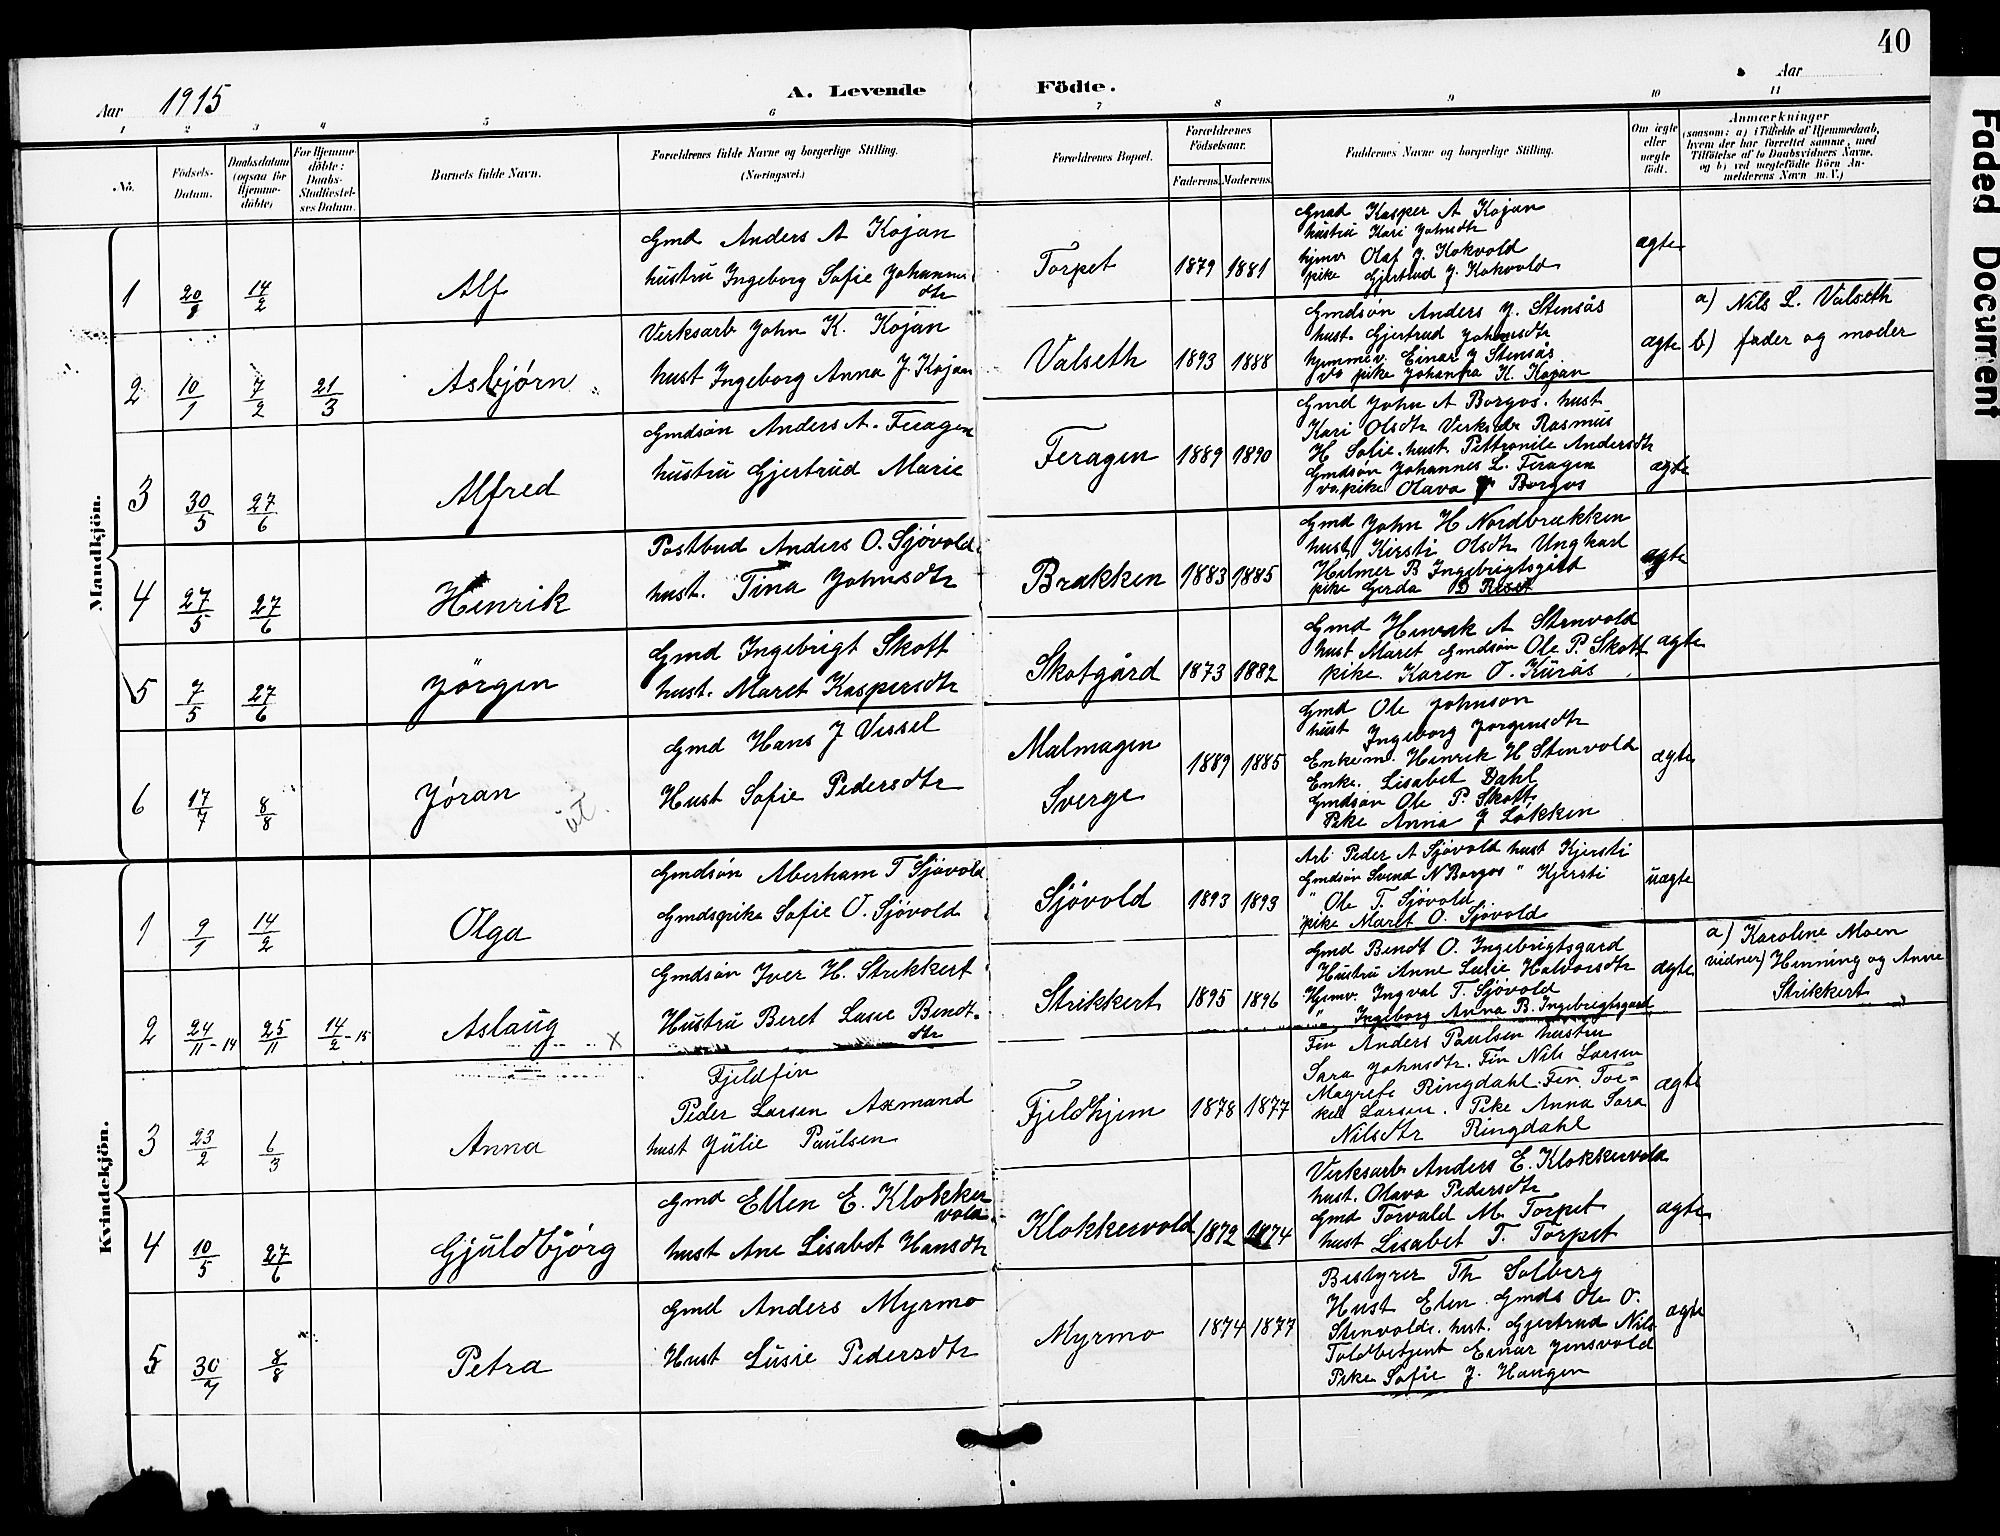 40
Faded Document
Aar 1915
A. Levende Födte.
Aar
1 2 3 4 5 6 7 8 9 10 11
No.
Födsels-Datum.
Daabsdatum (ogsaa for Hjemme-döbte)
For Hjemme-döbte: Daabs-Stadfæstel-ses Datum.
Barnets fulde Navn.
Forældrenes fulde Navne og borgerlige Stilling.
(Næringsvei.)
Forældrenes Bopæl.
Forældrenes Födselsaar.
Faderens. Moderens.
Faddernes Navne og borgerlige Stilling.
Om ægte eller uægte födt.
Anmærkninger
(saasom: a) i Tilfælde af Hjemmedaab, hvem der har forrettet samme, med Tilföielse af to Daabsvidners Navne, og b) ved uægtefödte Börn Anmelderens Navn m. V.)
Mandkjön.
1 20/1 14/2 Alf
Gmd Anders A Kojan
hustru Ingeborg Sofie Johannes
dtr
Torpet 1879 1881
Gmd Kasper A Kojan
hustru Kari Johnsdtr
hjmv Olaf J. Kokvold
pike Gjertrud J. Kokvold
ægte
2 10/1 7/2 21/3 Asbjørn
Verksarb John K. Kojan
hust Ingeborg Anna J Kojan
Valseth 1893 1888
Gmdsön Anders J. Stensås
hust. Gjertrud Johnsdtr
hjemmev. Einar J Stensås
do pike Johanna K. Kojan
ægte
a) Nils L. Valseth
b) fader og moder
3 30/5 27/6 Alfred
Gmdsön Anders A. Feragen
hustru Gjertrud Marie
Feragen 1889 1890
Gmd John A Borgos. hust
Kari Olsdtr Rasmus
H Solie. hust. Pettronile Andersdtr
Gmdsön Johannes L. Feragen
pike Olava Borgos
ægte
4 27/5 27/6 Henrik
Postbud Anders O. Sjövold
hust. Tina Johnsdtr
Brækken 1883 1885
Gmd John H Nordbrækken
hust. Kirsti Olsdtr Ungkarl
Hilmer B Ingebrigtsgård
pike Gerda B
ægte
5 7/5 27/6 Jörgen
Gmd Ingebrigt Skott
hust. Maret Kaspersdtr
Skotgård 1873 1882
Gmd Henrik A Stenvold
hust Maret Gmdsön Ole P. Skott
pike. Karen O. Kurås
ægte
6 17/7 8/8 Jöran ut.
Gmd Hans J Vessel
Hust Sofie Pedersdtr
Malmagen
Sverge
1889 1885
Gmd Ole Johnson
hust Ingeborg Jorgensdtr
Enkem. Henrik H Stenvold
Enke. Lisabet Dahl
Gmdsön Ole P. Skott
Pike Anna J Løkken
ægte
Kvindekjön.
1 9/1 14/2 Olga
Gmdsön Aberham T Sjövold
Gmdspike Sofie O. Sjövold
Sjövold 1893 1893
Arb Peder A Sjövold hust Kjersti
Gmdsön Svend N Borgos " Kjersti
" Ole T. Sjövold
pike Maret O. Sjövold
uægte
2 24/11-14 25/11 14/2-15 Aslaug x
Gmdsön Iver H. Strikkert
Hustru Beret Lusie Bendt.
dtr
Strikkert 1895 1896
Gmd Bendt O. Ingebrigtsgard
Hustru Anne Lusie Halvorsdtr
Hjemv. Ingval T. Sjövold
" Ingeborg Anna B. Ingebrigtsgard
ægte
a) Karoline Moen
vidner) Henning og Anne
Strikkert
3 23/2 6/3 Anna
Fjeldfin
Peder Larsen Axmand
hust Julie Paulsen
Fjeldhjem 1878 1877
Fin Anders Paulsen hustru
Sara Johnsdtr. Fin Nils Larsen
Magrete Ringdahl. Fin. Tor-
kel Larsen. Pike Anna Sara
Nilsdtr Ringdahl
ægte
4 10/5 27/6 Gjuldbjörg
Gmd Ellen E. Klokker
vold
hust Ane Lisabet Hansdtr
Klokkervold 1872 1874
Verksarb Anders E. Klokkervold
hust. Olava Pedersdtr
Gmd Torvald M. Torpet
hust Lisabet T. Torpet
ægte
5 30/7 8/8 Petra
Gmd Anders Myrmo
Hust Lusie Pedersdtr
Myrmo 1874 1877
Bestyrer Th Solberg
Hust Elen. Gmds Ole O.
Stenvolde. hust. Gjertrud Nils
Toldbetjent Einar Jensvold
Pike Sofie J. Haugen
ægte